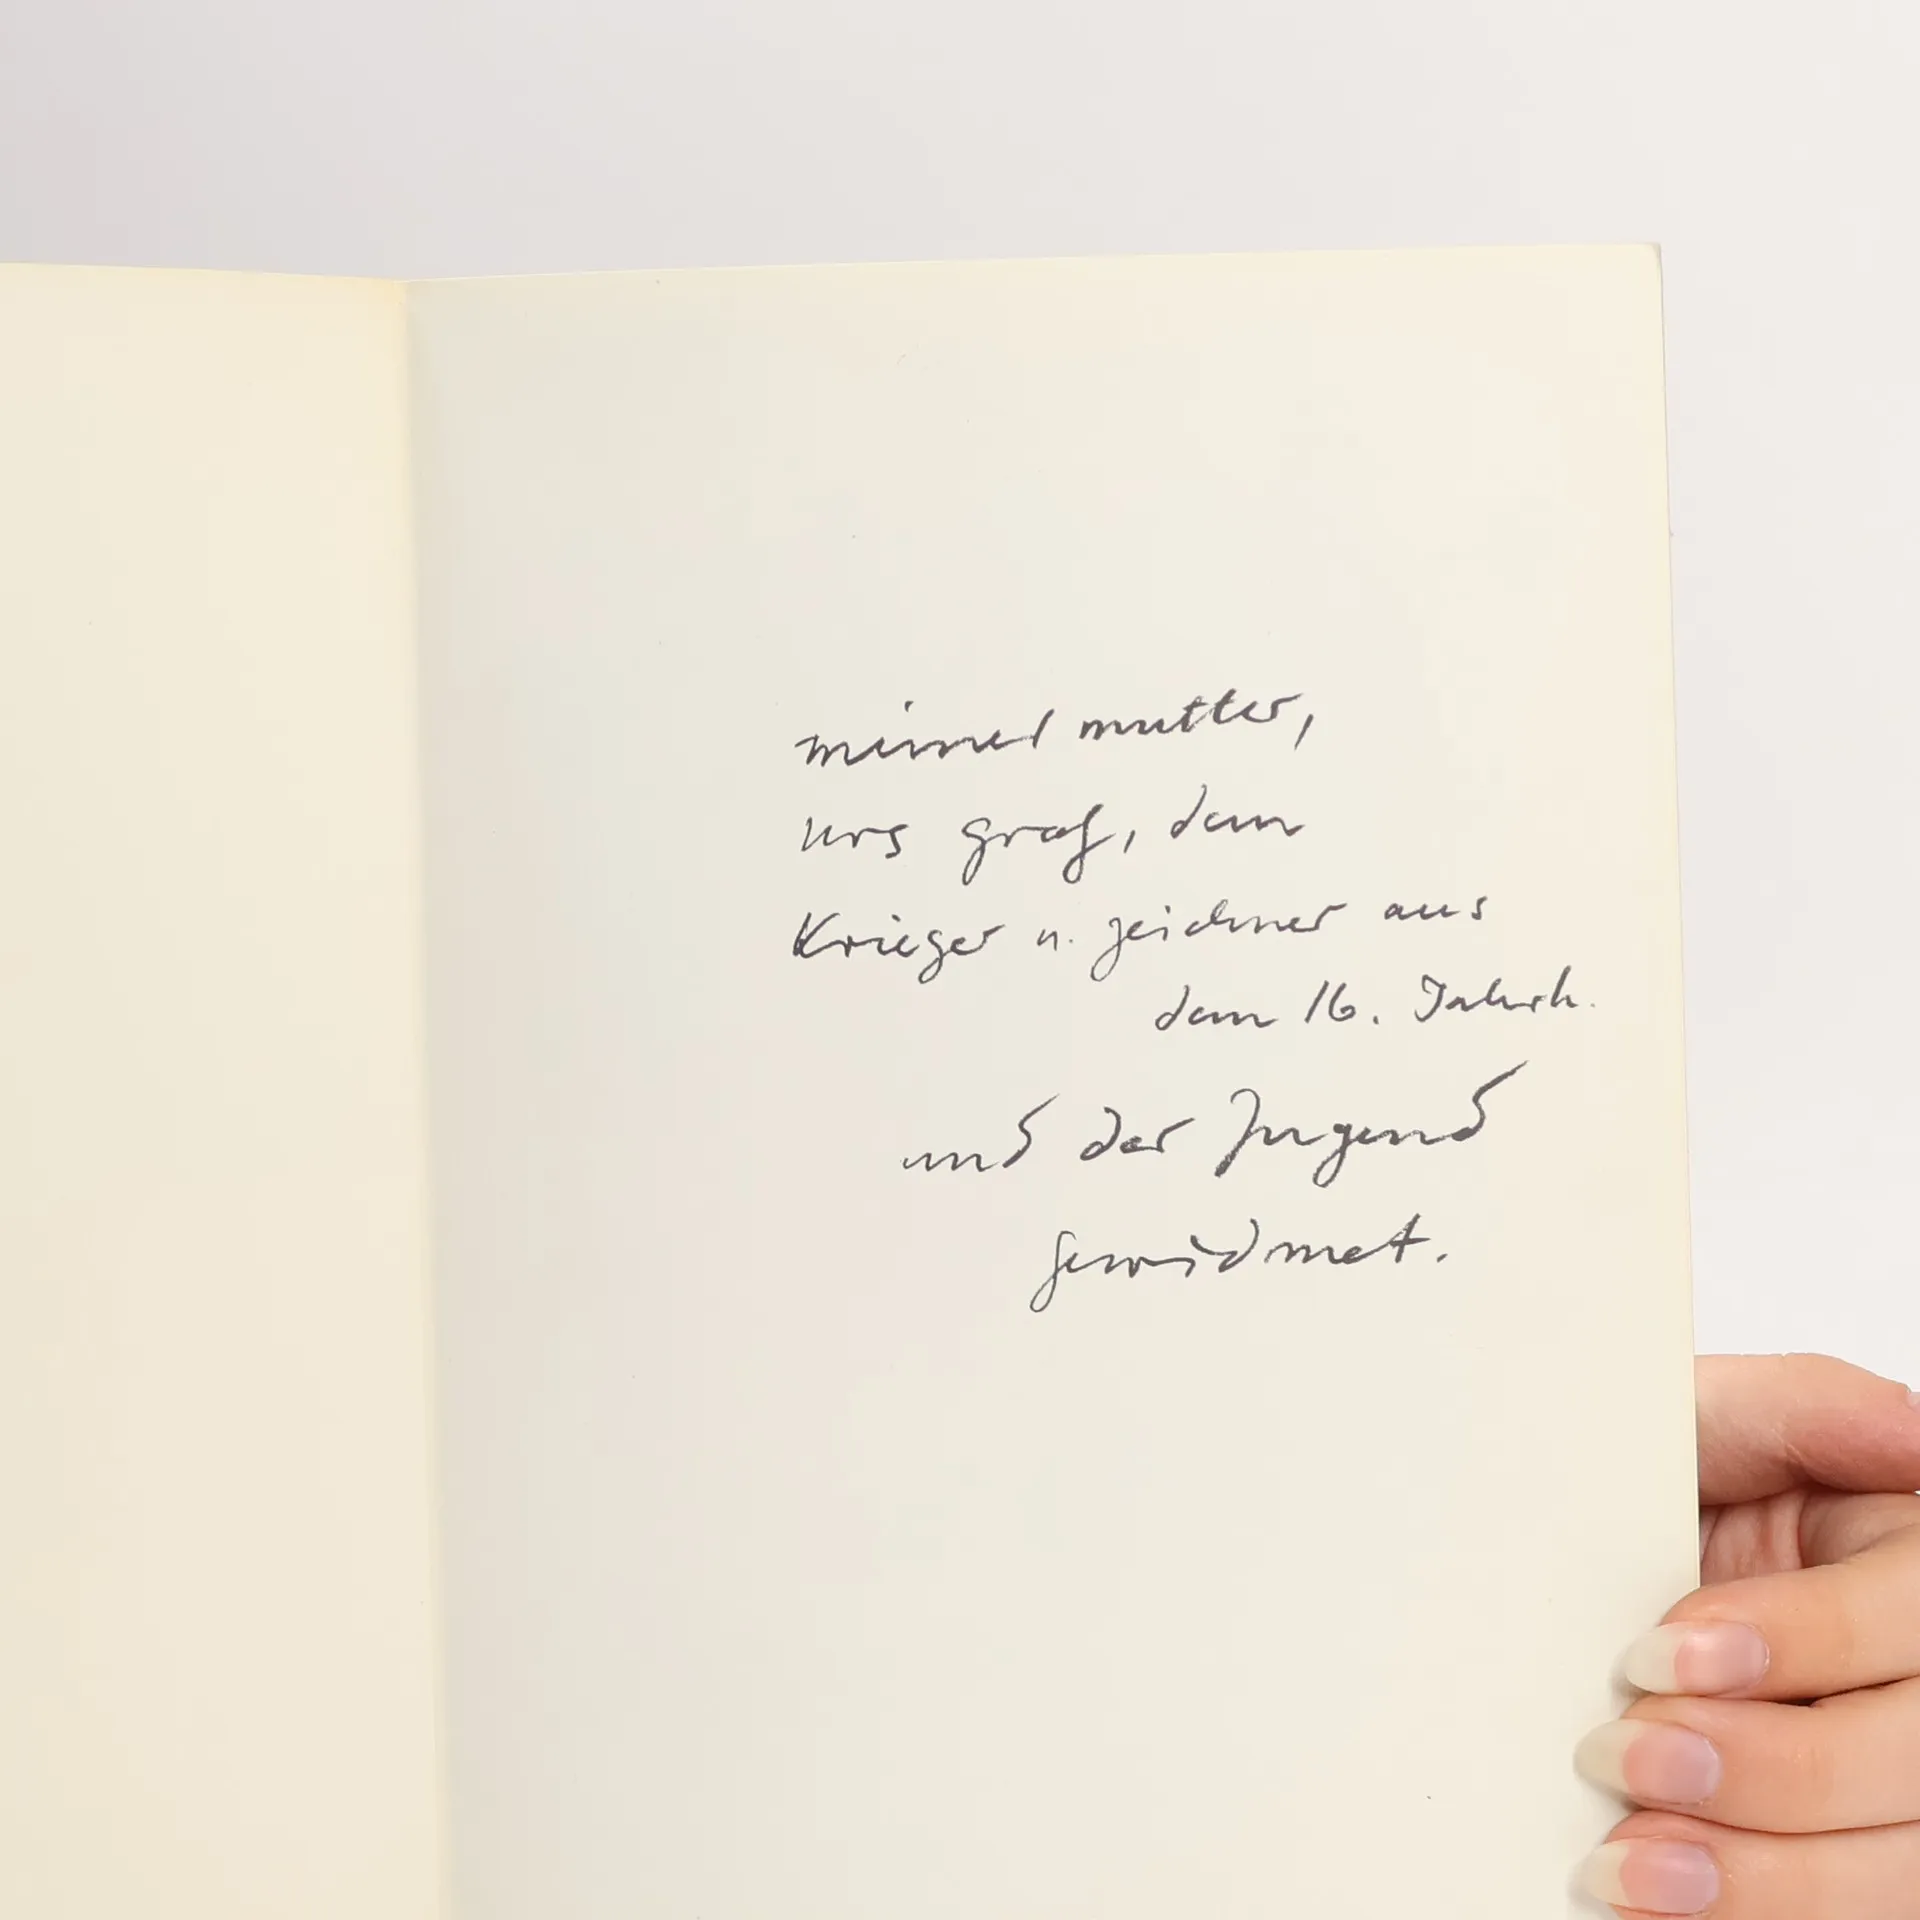 meiner mutter,
urs graf, dem
Krieger u. zeichner aus
dem 16. Jahrh.
und der Jugend
gewidmet.